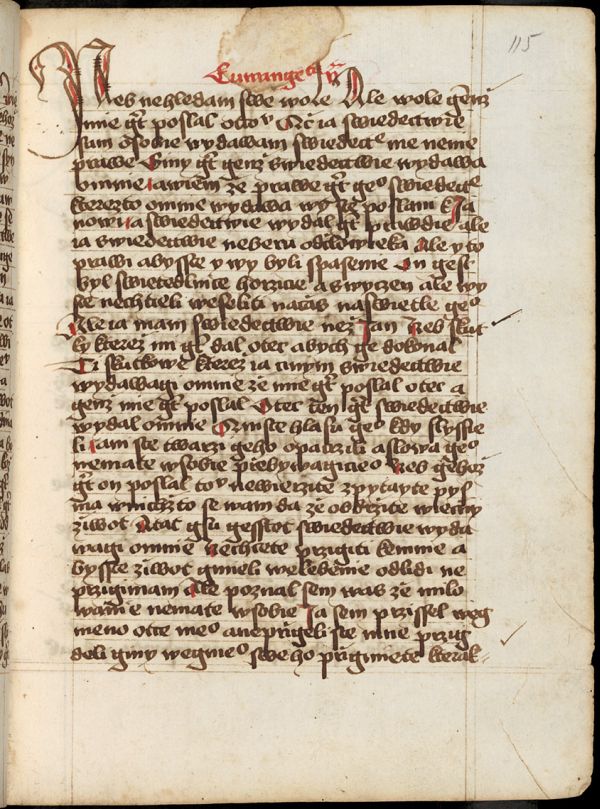 115
Ewangeliū
Neb nehledam swe wole Ale wole gēnz
mie gt̄ poslal otcoᵛ Oč ia swiedectwie
sam osobie wydawam swiedectᵉ me neme
prawe Giny gt̄ genz swiedectwie wydawa
omnie iawiem že prawe gt̄ geᵒ swiedectᵉ
kterezto omnie wydawa wy ste poslani k Ja
nowi a swiedectwie wydal gt̄ prawdie ale
ia swiedectwie neberu odclowieka Ale y to
prawi abysste y wy byli spaseme On gest
byl swietedlnice horzicie a swyczen ale wy
ste nechtieli weseliti nas naswietle geᵒ
Ale ia mam swiedectwie než Jan Neb skut
ky kterez mi gt̄ dal otec abych ge dokonal
Ti skutkowe kterez ia cinym swiedectwie
wydawagi omnie že mie gt̄ poslal otec a
genz mie gt̄ poslal Otec ten gt̄ swiedectwie
wydal omnie Ozniste hlasu geᵒ kdy slysse
li am ste twarzi geho opatrili aslowa geᵒ
nemate wsobie přebywagicieᵒ Neb gehož
gt̄ on poslal toᵛ newierzite zpytayte pys
ma wnichzto se wam da že obdrzite wiecny
žiwot Atat gsu gesstot swiedectwie wyda
wagi omnie nechcete przigiti kemnie a
bysste žiwot gmieli welebenie odlidi ne
przigimam Ale poznal sem was že milo
wanie nemate wsobie Ja sem przissel weg
meno otce meᵒ aneprigeli ste mne przig
deli giny wegmeᵒ sweho prigmete kterak-